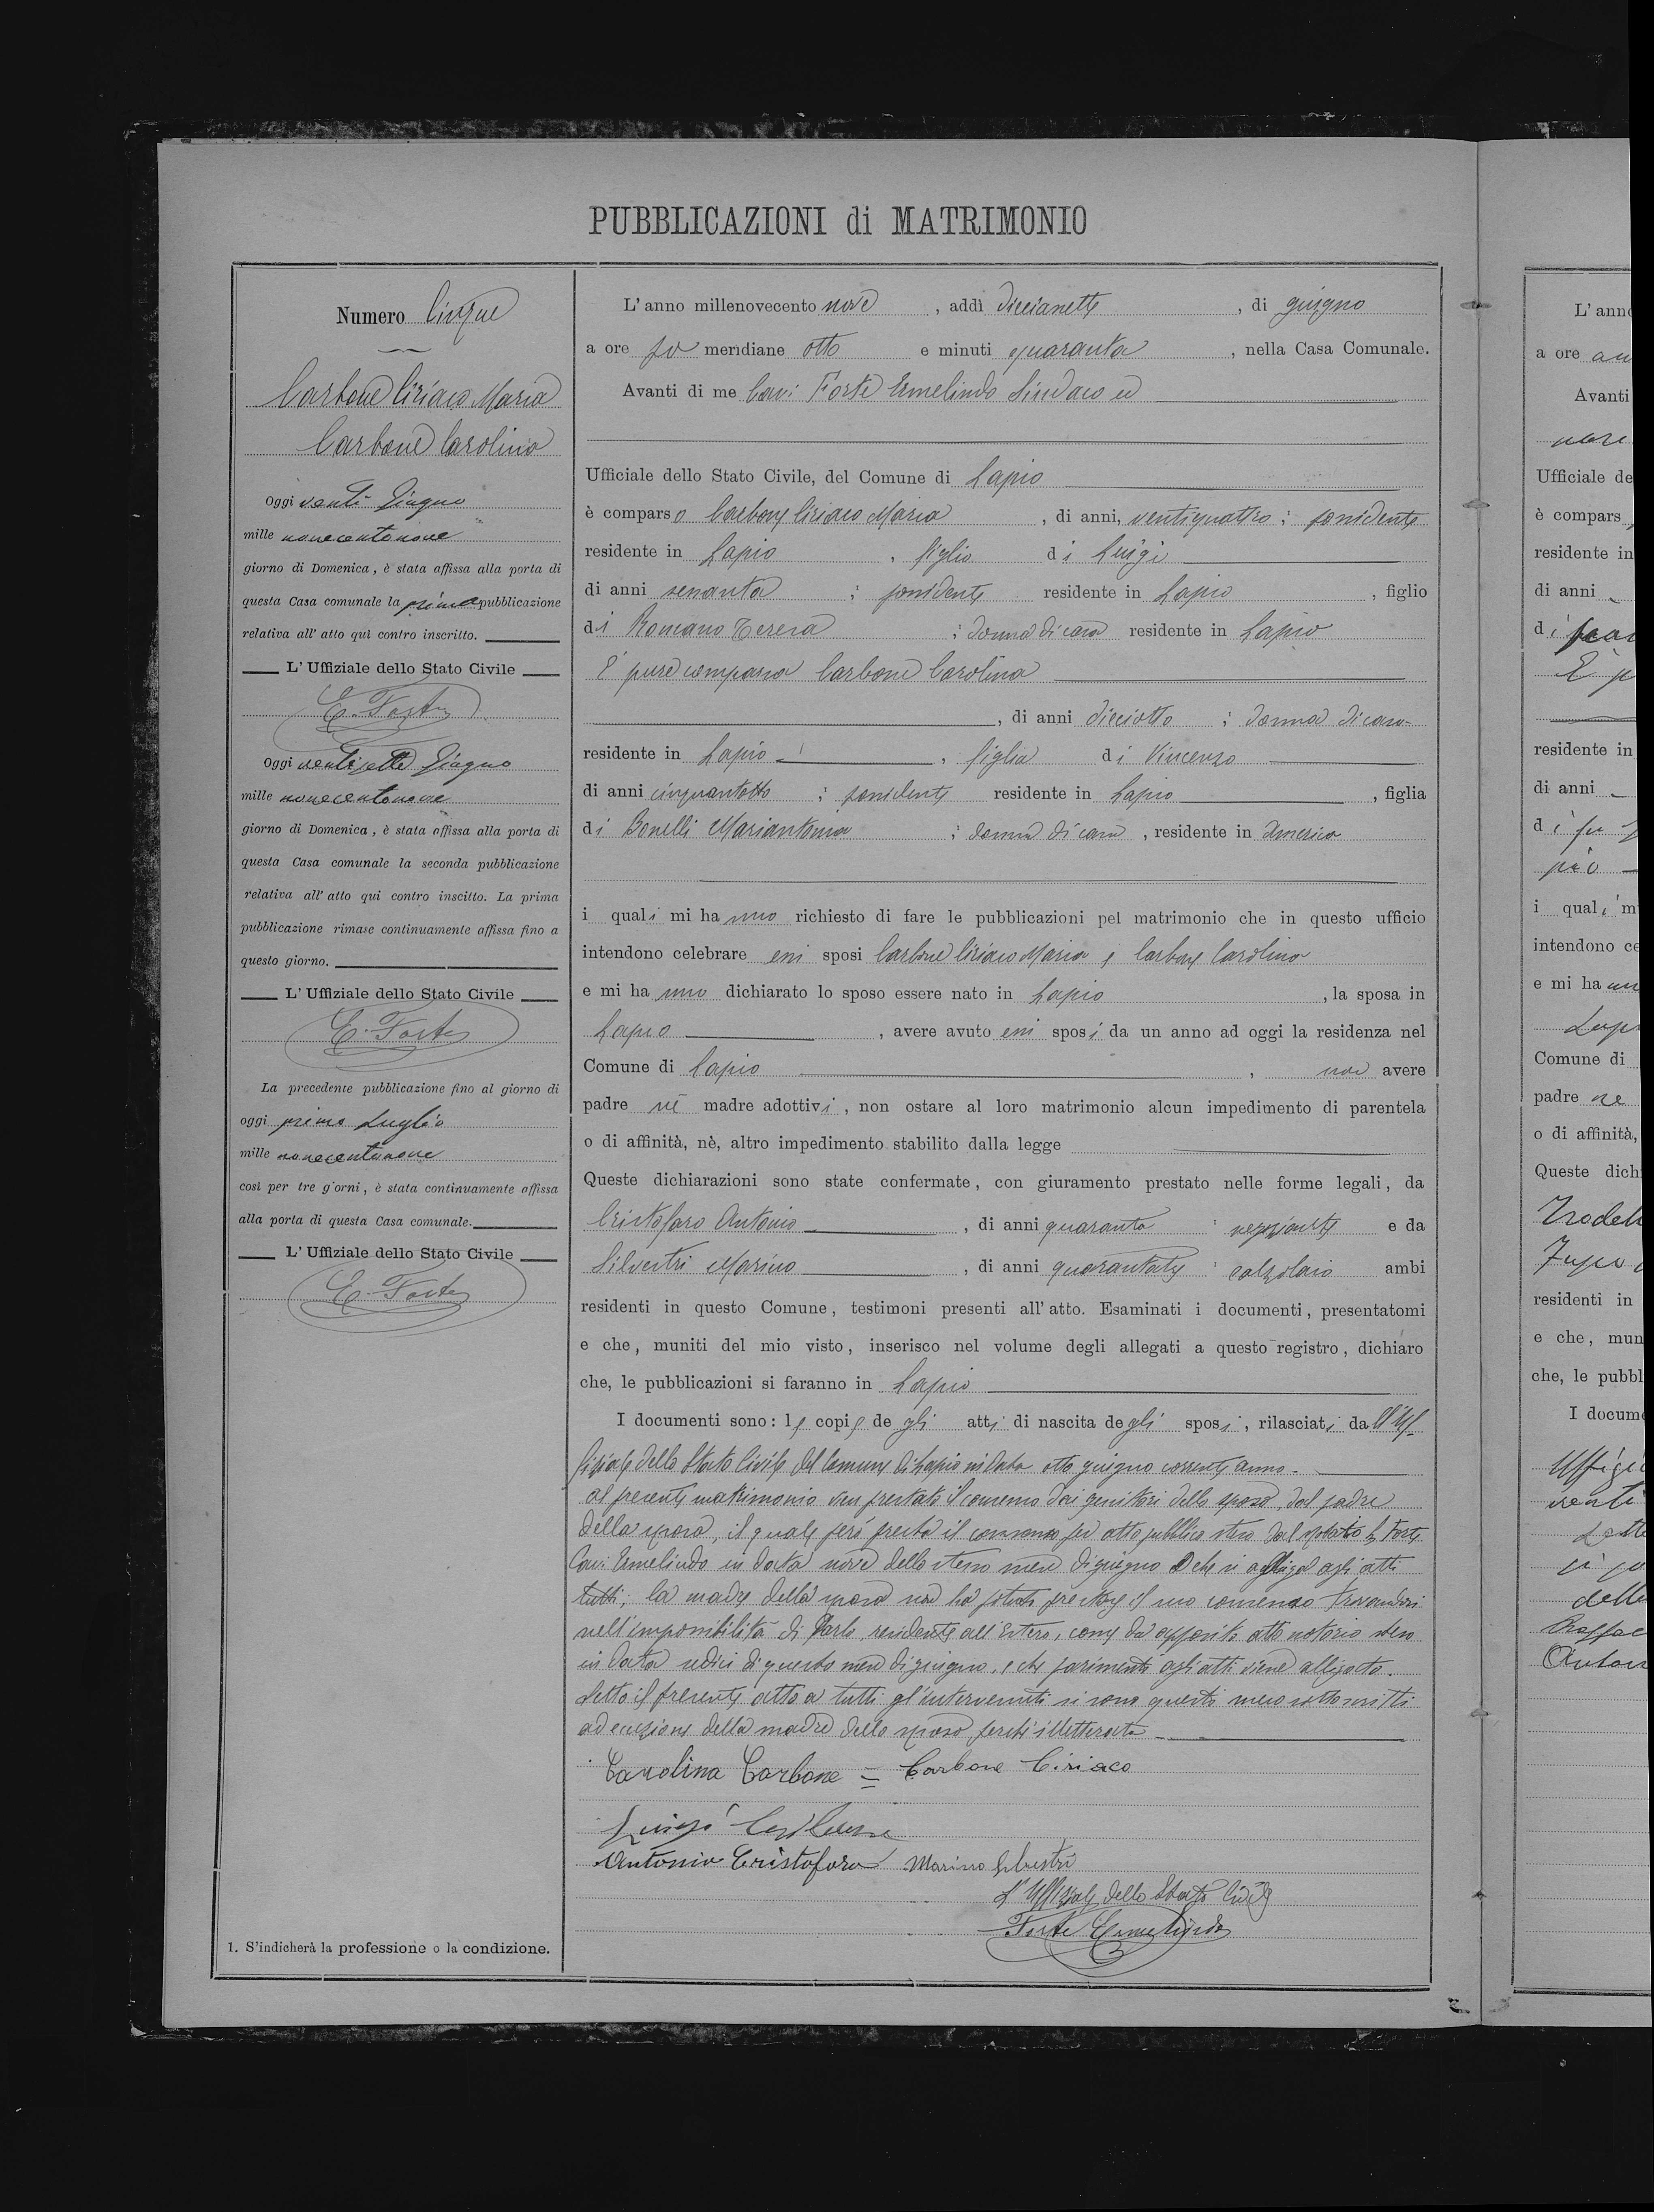 PUBBLICAZIONI di MATRIMONIO
Numero Cinque
Carbone Ciriaco Maria
Carbone Carolina
Oggi venti Giugno
mille novecentonove
giorno di Domenica, è stata affissa alla porta di
questa Casa comunale la prima pubblicazione
relativa all' atto quì contro inscritto.
L' Uffiziale dello Stato Civile
E. Forte
Oggi ventisette Giugno
mille novecentonove
giorno di Domenica, è stata affissa alla porta di
questa Casa comunale la seconda pubblicazione
relativa all' atto qui contro inscitto. La prima
pubblicazione rimase continuamente affissa fino a
questo giorno.
L' Uffiziale dello Stato Civile
E. Forte
La precedente pubblicazione fino al giorno di
oggi primo Luglio
mille novecentonove
così per tre giorni, è stata continuamente affissa
alla porta di questa Casa comunale.
L' Uffiziale dello Stato Civile
E. Forte
1. S'indicherà la professione o la condizione.
L' anno millenovecento nove, addì diecianette, di giugno
a ore po meridiane otto e minuti quaranta, nella Casa Comunale.
Avanti di me Cav: Forte Ermelindo Sindaco ed
Ufficiale dello Stato Civile, del Comune di Lapio
è comparso Carbone Ciriaco Maria, di anni, ventiquattro; possidente
residente in Lapio, figlio di Luigi
di anni sessanta; possidente residente in Lapio, figlio
di Romano Teresa; donna di casa residente in Lapio
È pure comparsa Carbone Carolina
, di anni dieciotto; donna di casa
residente in Lapio, figlia di Vincenzo
di anni cinquantotto; possidente residente in Lapio, figlia
di Bonelli Mariantonia; donna di casa, residente in America
i quali mi hanno richiesto di fare le pubblicazioni pel matrimonio che in questo ufficio
intendono celebrare essi sposi Carbone Ciriaco Maria e Carbone Carolina
e mi hanno dichiarato lo sposo essere nato in Lapio, la sposa in
Lapio, avere avuto essi sposi da un anno ad oggi la residenza nel
Comune di Lapio, non avere
padre nè madre adottivi, non ostare al loro matrimonio alcun impedimento di parentela
o di affinità, nè, altro impedimento stabilito dalla legge
Queste dichiarazioni sono state confermate, con giuramento prestato nelle forme legali, da
Cristofaro Antonio, di anni quaranta; negoziante e da
Silvestri Marino, di anni quarantatre; calzolaio ambi
residenti in questo Comune, testimoni presenti all' atto. Esaminati i documenti, presentatomi
e che, muniti del mio visto, inserisco nel volume degli allegati a questo registro, dichiaro
che, le pubblicazioni si faranno in Lapio
I documenti sono: le copie degli atti di nascita degli sposi, rilasciati dall'Uf-
fiziale dello Stato Civile del Comune di Lapio in data otto giugno corrente anno.
al presente matrimonio vien prestato il consenso dai genitori dello sposo, dal padre
della sposa, il quale però presta il consenso per atto pubblico steso dal Notaio Forte
Cav: Ermelindo in data nove dello stesso mese di giugno e che si alliga agli atti
tutti; la madre della sposa non ha potuto prestare il suo consenso trovandosi
nell'impossibilità di farlo, residente all'Estero, come da apposito atto notorio steso
in data sedici di questo mese di giugno, e che parimenti agli atti viene alligato.
Letto il presente atto a tutti gl'intervenuti si sono questi meco sottoscritti
ad eccezione della madre dello sposo, perchè illetterata
Carolina Carbone = Carbone Ciriaco
Luigi Carbone
Antonio Cristofaro Marino Silvestri
L'Uffiziale dello Stato Civile
Forte Ermelindo
L' anno
a ore an
Avanti
Ufficiale de
è compars
residente in
di anni
di
È p
residente in
di anni
di fu
pio
i quali m
intendono ce
e mi ha
Lapi
Comune di
padre ne
o di affinità,
Queste dich
residenti in
e che, mun
che, le pubbl
I docume
Uffizi
venti
delle
Raffae
Anton